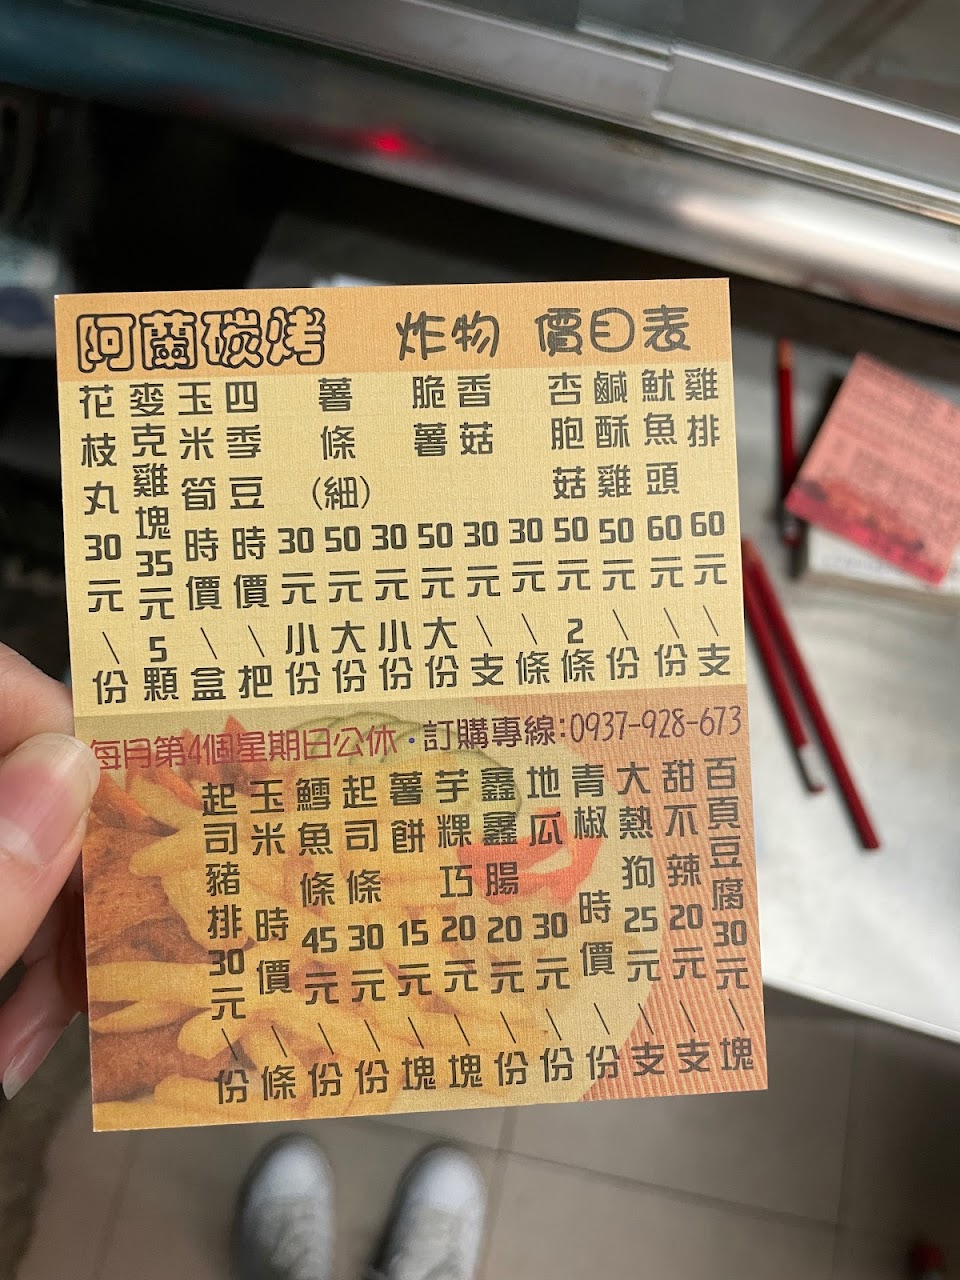 阿蘭碳烤 炸物 價目表
雞排60元\支
魷魚頭60元\份
鹹酥雞50元\份
杏胞菇50元2條
30元\條
香菇30元\支
脆薯50元大份
30元小份
薯條(細)50元大份
30元小份
四季豆時價\把
玉米筍時價\盒
麥克雞塊35元5顆
花枝丸30元\份
每月第4個星期日公休·訂購專線:0937-928-673
百頁豆腐30元\塊
甜不辣20元\支
大熱狗25元\支
青椒時價\份
地瓜30元\份
鑫鑫腸20元\份
芋粿巧20元\塊
薯餅15元\塊
起司條30元\份
鱈魚條45元\份
玉米時價\條
起司豬排30元\份